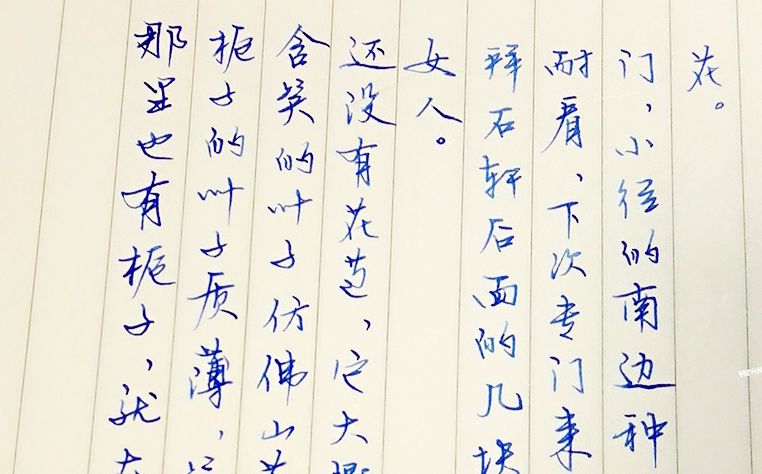 花。
门，小径的南边种
耐看，下次专门来
拜石轩后面的几块
女人。
还没有花苞，它大
含笑的叶子仿佛山茶
栀子的叶子质薄，
那里也有栀子，就在